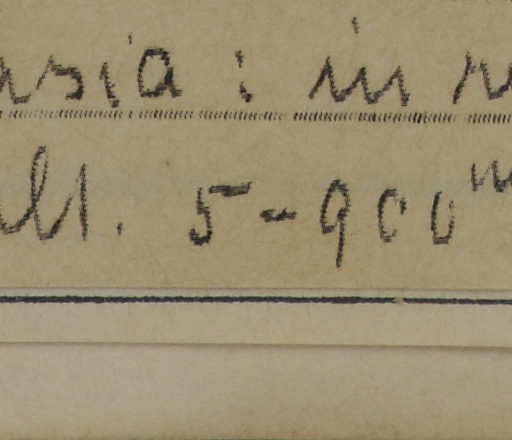 asia : in
alt. 5-900 m